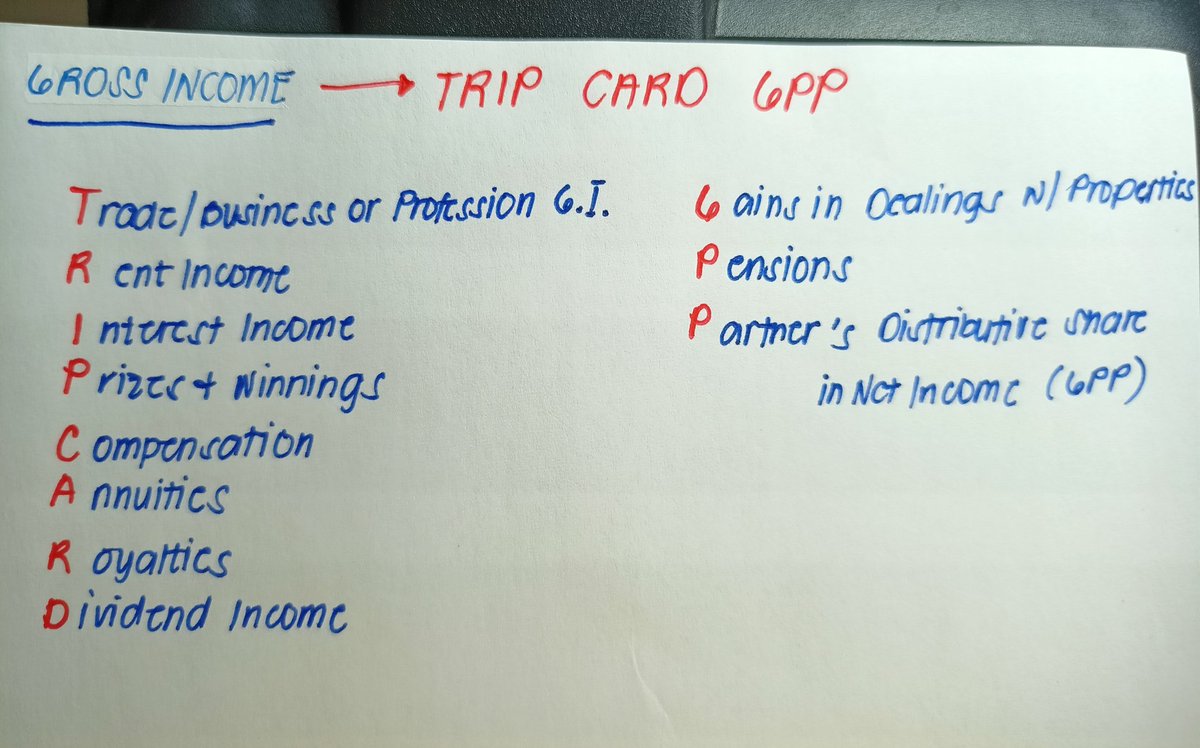 GROSS INCOME → TRIP CARD GPP
Trade/Business or Profession G.I.
Rent Income
Interest Income
Prizes + Winnings
Compensation
Annuities
Royalties
Dividend Income
Gains in Dealings w/ Properties
Pensions
Partner's Distributive Share
in Net Income (GPP)